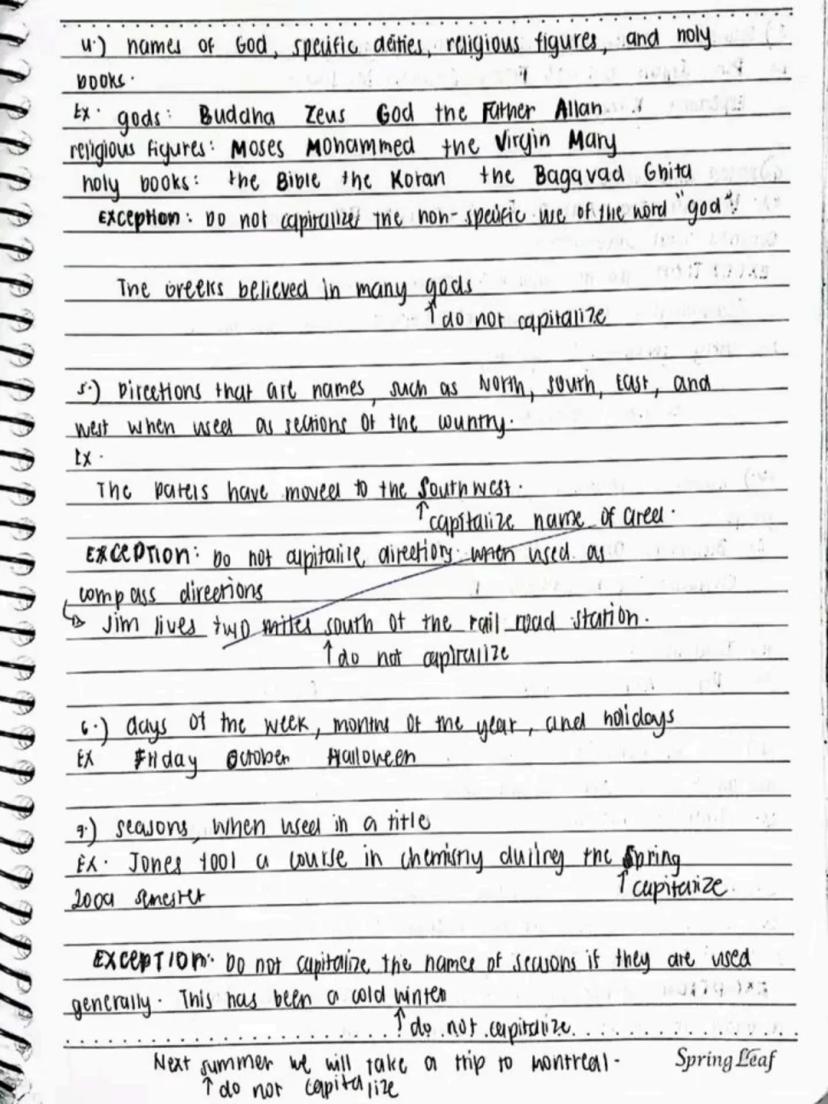 4.) names of God, specific deities, religious figures, and holy
books.
Ex. gods: Buddha Zeus God the Father Allah
religious figures: Moses Mohammed the Virgin Mary
holy books: the Bible the Koran the Bagavad Ghita
EXCEPTION: Do not capitalize the non-specific use of the word "god".
The Greeks believed in many gods
↑ do not capitalize
5.) Directions that are names, such as North, South, East, and
West when used as sections of the country.
Ex.
The Patels have moved to the Southwest.
↑ capitalize name of area.
EXCEPTION: Do not capitalize directions when used as
compass directions
↳ Jim lives two miles south of the rail road station.
↑ do not capitalize
6.) days of the week, months of the year, and holidays
EX Friday October Halloween
7.) seasons, when used in a title
EX. Jones tool a course in chemistry duilreg the Spring
2009 semester
↑ capitalize
EXCEPTION: Do not capitalize the names of seasons if they are used
generally. This has been a cold winter
↑ do not capitalize
Next summer we will take a trip to Montreal.
↑ do not capitalize
Spring Leaf